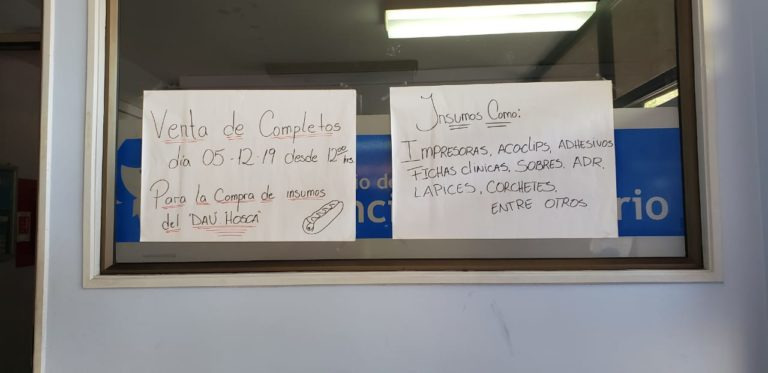 Venta de Completos
día 05-12-19 desde 12:00 hrs
Para la Compra de insumos
del "DAU HOSCA"
Insumos Como:
IMPRESORAS, ACOCLIPS, ADHESIVOS
FICHAS CLINICAS, SOBRES, ADR,
LAPICES, CORCHETES,
ENTRE OTROS